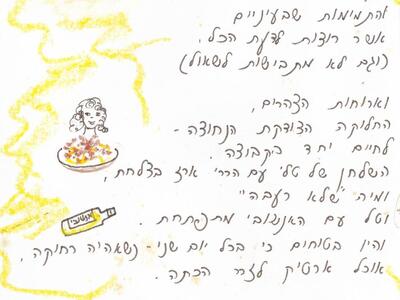 והתמימות שבעיניים
אשר רוצות לדעת הכל.
(וגם לא מתביישות לשאול)
וארוחות הצהרים,
החלוקה הצודקת הנחוצה -
לחיים יחד בקבוצה.
השלחן של טלי עם הררי אורז בצלחת,
ומיה "שלא רעבה"
וטל עם האנטיבי מתנפתחת.
והיו בטוחים כי בכל יום שני - נשאהיה רחוקה,
אוכל ארטיק לצד הכתה.